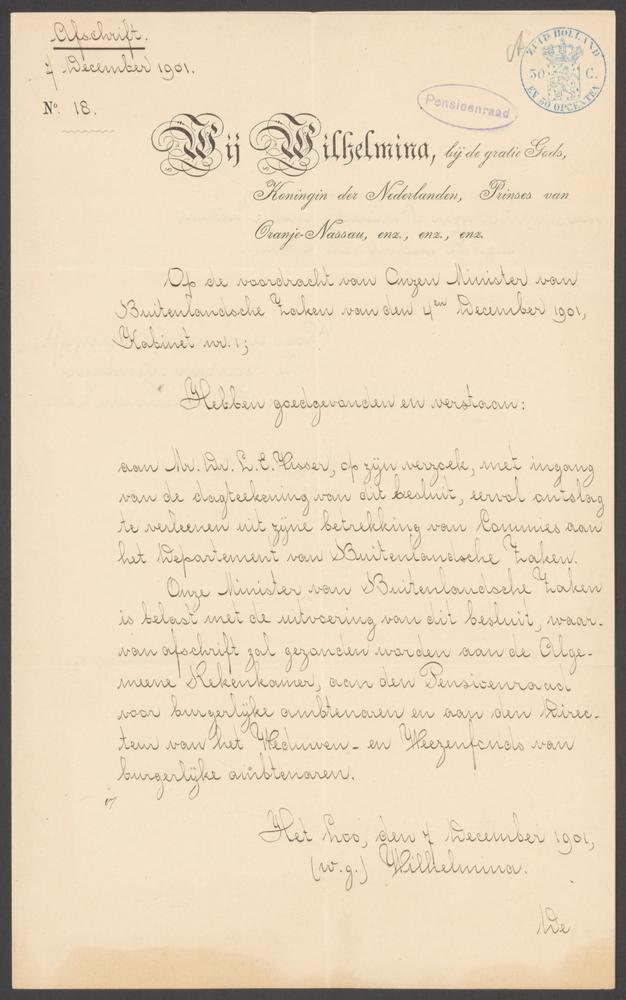 Afschrift.
7 December 1901.
No. 18.
ZUID HOLLAND
50 C.
EN 50 OPCENTEN
Pensioenraad
Wij Wilhelmina, bij de gratie Gods,
Koningin der Nederlanden, Prinses van
Oranje-Nassau, enz., enz., enz.
Op de voordracht van Onzen Minister van
Buitenlandsche Zaken van den 4en December 1901,
Kabinet nr. 1;
Hebben goedgevonden en verstaan:
aan Mr. Dr. L. E. Visser, op zijn verzoek, met ingang
van de dagteekening van dit besluit, eervol ontslag
te verleenen uit zijne betrekking van Commies aan
het Departement van Buitenlandsche Zaken.
Onze Minister van Buitenlandsche Zaken
is belast met de uitvoering van dit besluit, waar-
van afschrift zal gezonden worden aan de Alge-
meene Rekenkamer, aan den Pensioenraad
voor burgerlijke ambtenaren en aan den Direc-
teur van het Weduwen- en Weezenfonds van
burgerlijke ambtenaren.
Het Loo, den 7 December 1901,
(w.g.) Wilhelmina.
De